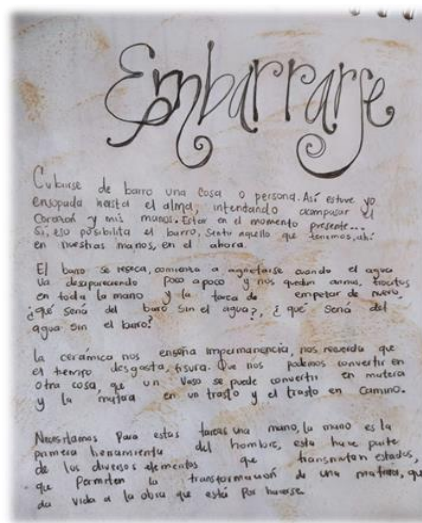 Embarrarse
Cubrirse de barro una cosa o persona. Así estuve yo
ensopada hasta el alma, intentando acompasar el
corazón y mis manos. Estar en el momento presente...
Si, eso posibilita el barro, sentir aquello que tenemos, ahí
en nuestras manos, en el ahora.
El barro se reseca, comienza a agrietarse cuando el agua
va desapareciendo poco a poco y nos quedan
en toda la mano y la tarea de empezar de nuevo,
¿qué sería del barro sin el agua?, ¿qué sería del
agua sin el barro?
La cerámica nos enseña impermanencia, nos recuerda que
el tiempo desgasta, fisura. Que nos podemos convertir en
otra cosa, que un vaso se puede convertir en matera
y la matera en un trasto y el trasto en camino.
Necesitamos para estas tareas una mano, la mano es la
primera herramienta del hombre, esta hace parte
de los diversos elementos que transmutan estados,
que permiten la transformación de una materia, que
da vida a la obra que está por hacerse.